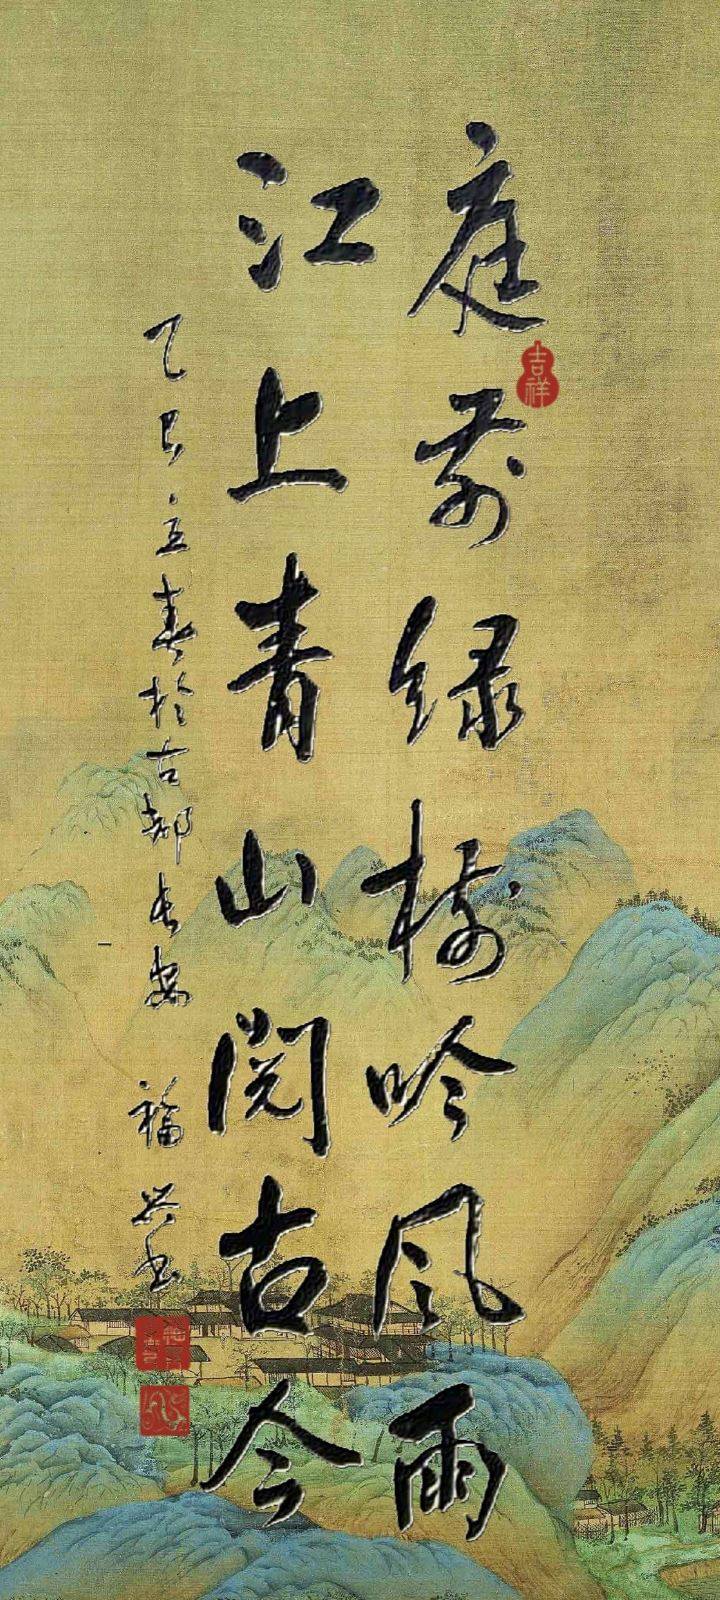 庭前绿树吟风雨
吉祥
江上青山阅古今
乙巳立春於古都长安 福兴书